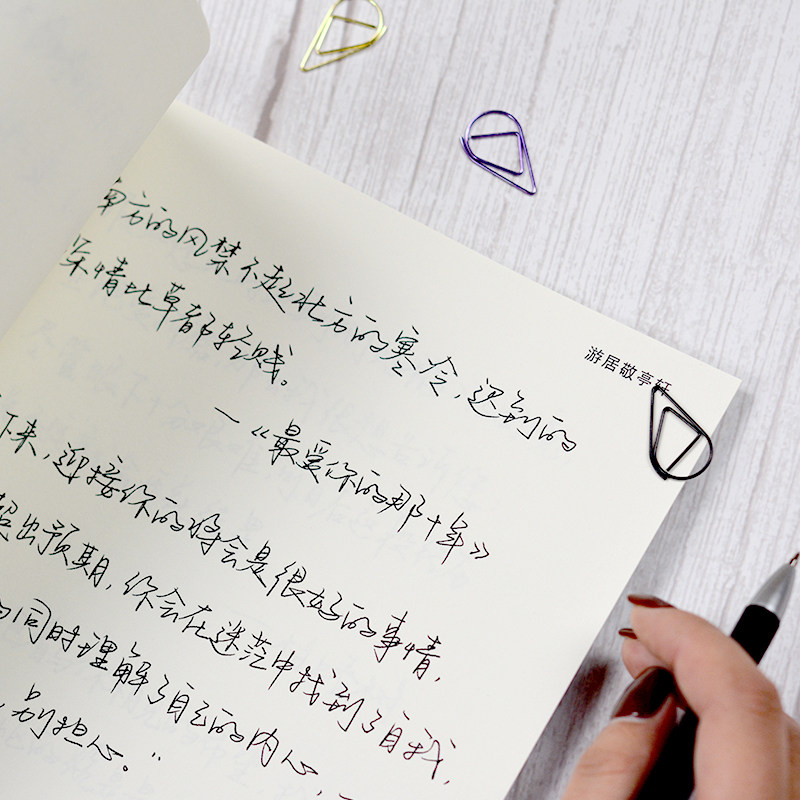 游居敬亭轩
南方的风禁不起北方的寒冷,迟到的
深情比草都轻贱。
—《最爱你的那十年》
下来,迎接你的将会是很好的事情,
超出预期,你会在迷茫中找到了自我,
的同时理解了自己的内心,
别担心。"